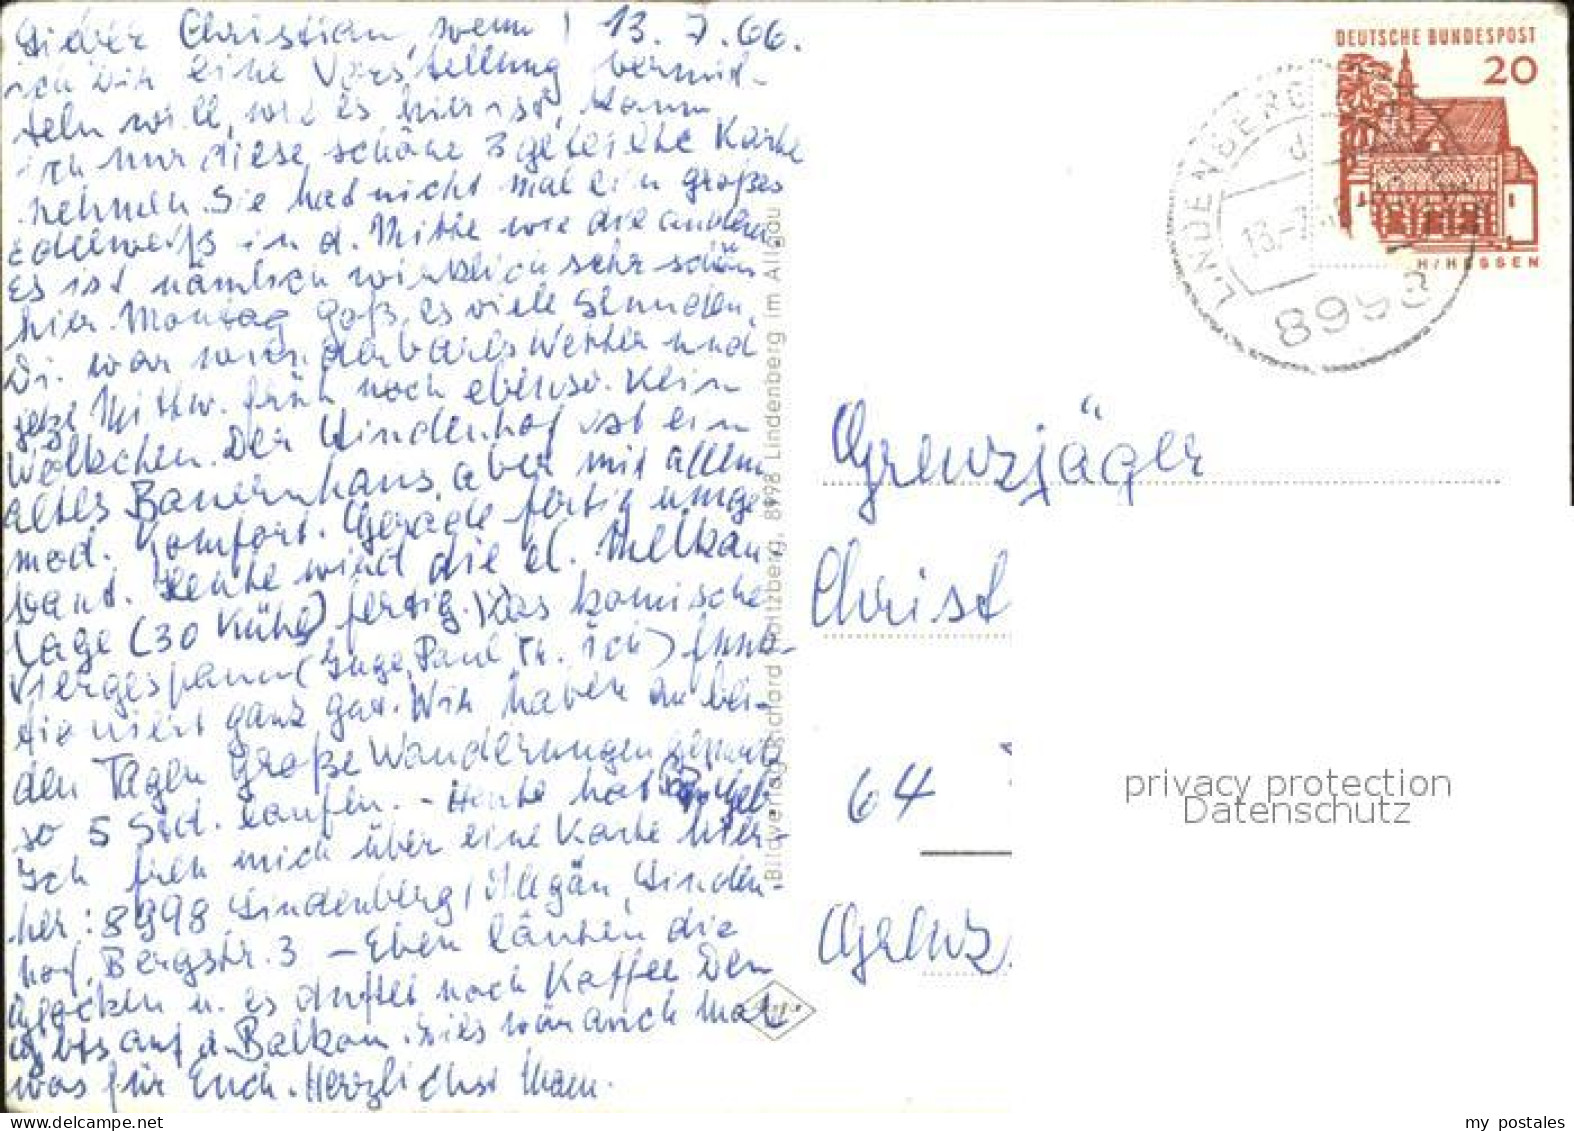 Lieber Christian, wenn | 13. 7. 66.
ich Dir eine Vorstellung vermit-
teln will, wie es hier ist, kann
ich nur diese schöne 3 geteilte Karte
nehmen. Sie hat nicht mal ein großes
Edelweiß in d. Mitte wie die andern
Es ist nämlich wirklich sehr schön
hier. Montag goß es viele Stunden,
Di. war wunderbares Wetter und
jetzt Mittw. früh noch ebenso. Kein
Wölkchen. Der Lindenhof ist ein
altes Bauernhaus, aber mit allem
mod. Komfort. Gerade fertig umge
baut. Heute wird die el. Melkan
lage (30 Kühe) fertig. Das komische
Viergespann (Inge, Paul Th. ich) funk-
tioniert ganz gut. Wir haben an bei-
den Tagen große Wanderungen gemacht
so 5 Std. laufen. - Heute hat Geb
Ich freu mich über eine Karte hier-
her: 8998 Lindenberg / Allgäu, Linden-
hof, Bergstr. 3 - Eben läuten die
Glocken u. es duftet nach Kaffee Den
gibts auf d. Balkon. Dies wär auch mal
was für Euch. Herzlichst Mam.
Bildverlag Richard Holtzberg, 8998 Lindenberg im Allgäu
DEUTSCHE BUNDESPOST
20
H/HESSEN
LINDENBERG
8998
Grenzjäger
Christ
64
Grenz
privacy protection
Datenschutz
my postales